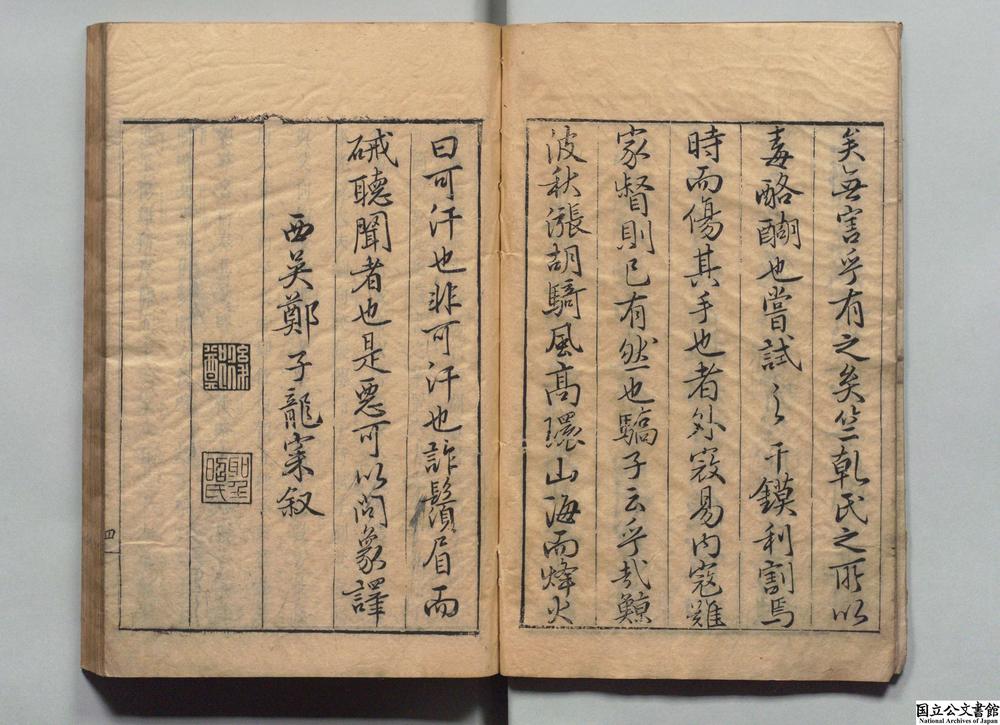 矣無害乎有之矣竺乹氏之所以
毒酪醐也嘗試之干鏌利割焉
時而傷其手也者外寇易内寇難
家督則已有然也驕子云乎哉鯨
波秋漲胡騎風髙環山海而烽火
曰可汗也非可汗也詐鬚眉而
䂒聽聞者也是惡可以問象譯
西吴鄭子龍寀叙
四
国立公文書館
National Archives of Japan